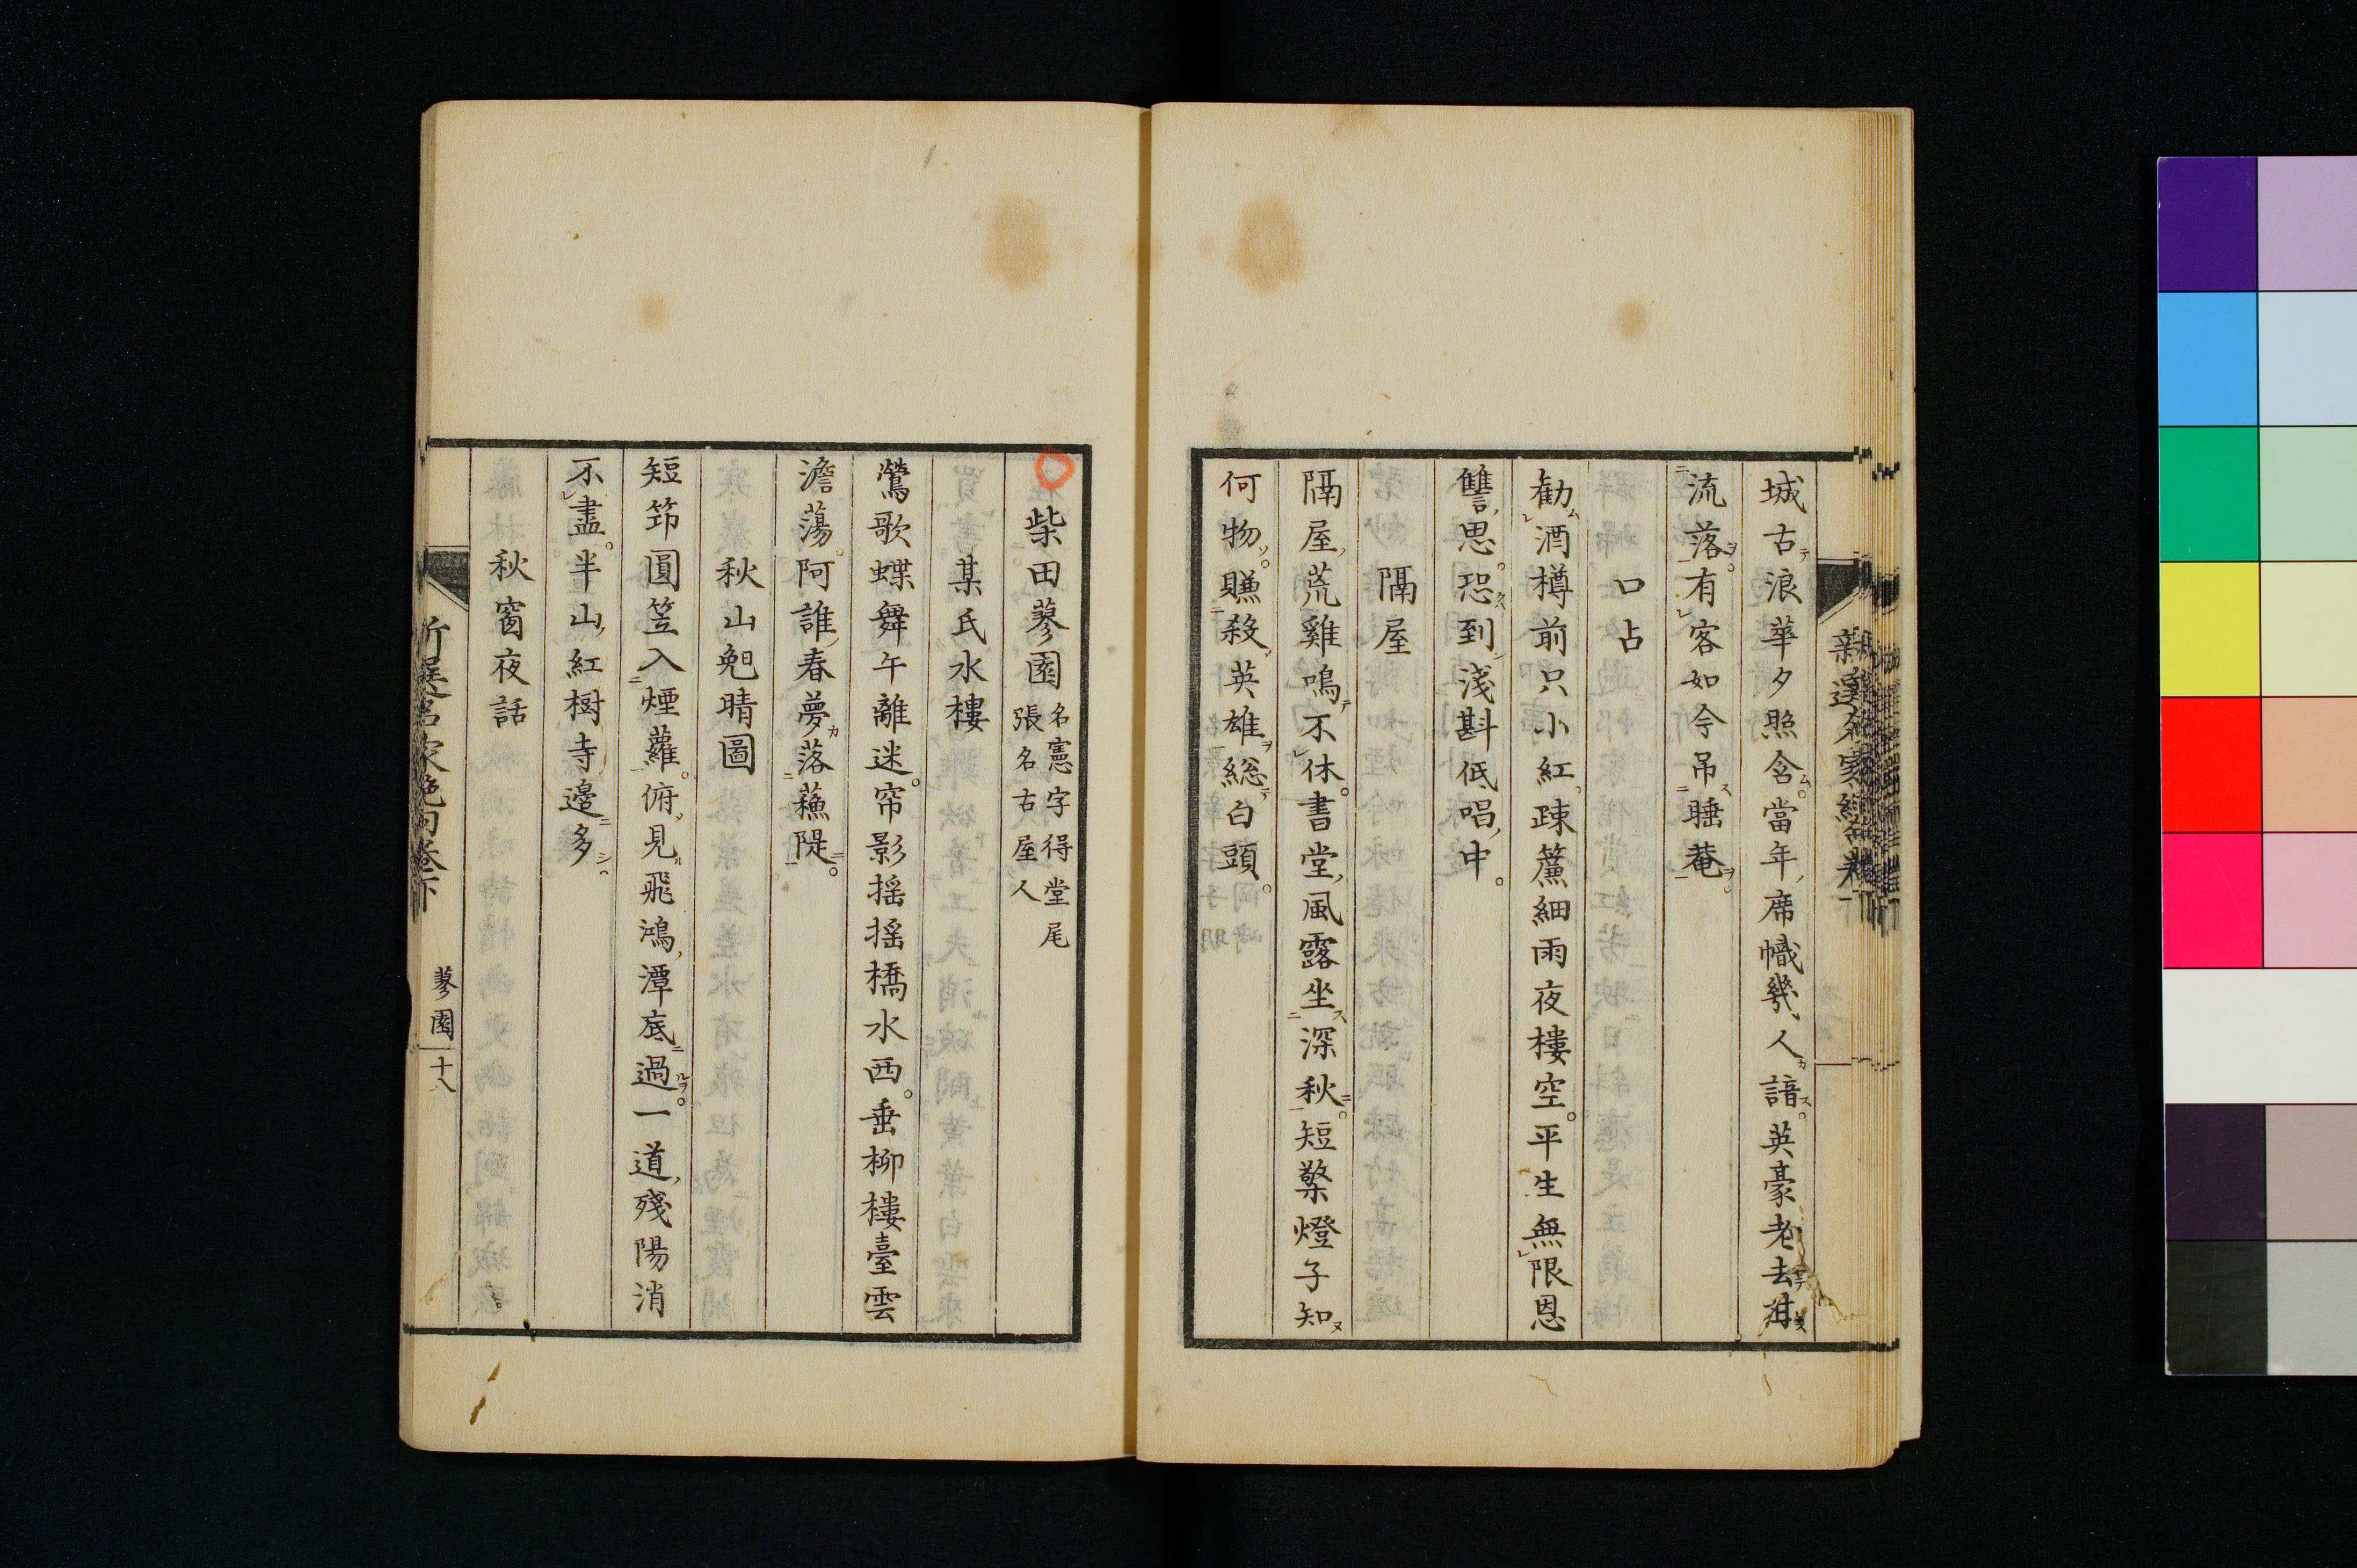 城古浪華夕照含當年席幟幾人諳英豪老去甘
流落有客如今吊睡菴
口占
勧酒樽前只小紅疎簾細雨夜樓空平生無限恩
讐思恐到淺斟低唱中
隔屋
隔屋荒雞鳴不休書堂風露坐深秋短檠燈子知
何物賺殺英雄総白頭
柴田蓼園
名憲字得堂尾
張名古屋人
某氏水樓
鶯歌蝶舞午離迷帘影搖搖橋水西垂柳樓臺雲
澹蕩阿誰春夢落蘓隄
秋山晩晴圖
短笻圓笠入煙蘿俯見飛鴻潭底過一道殘陽消
不盡半山紅樹寺邊多
秋窗夜話
新選名家絶句卷下
蓼園
十八